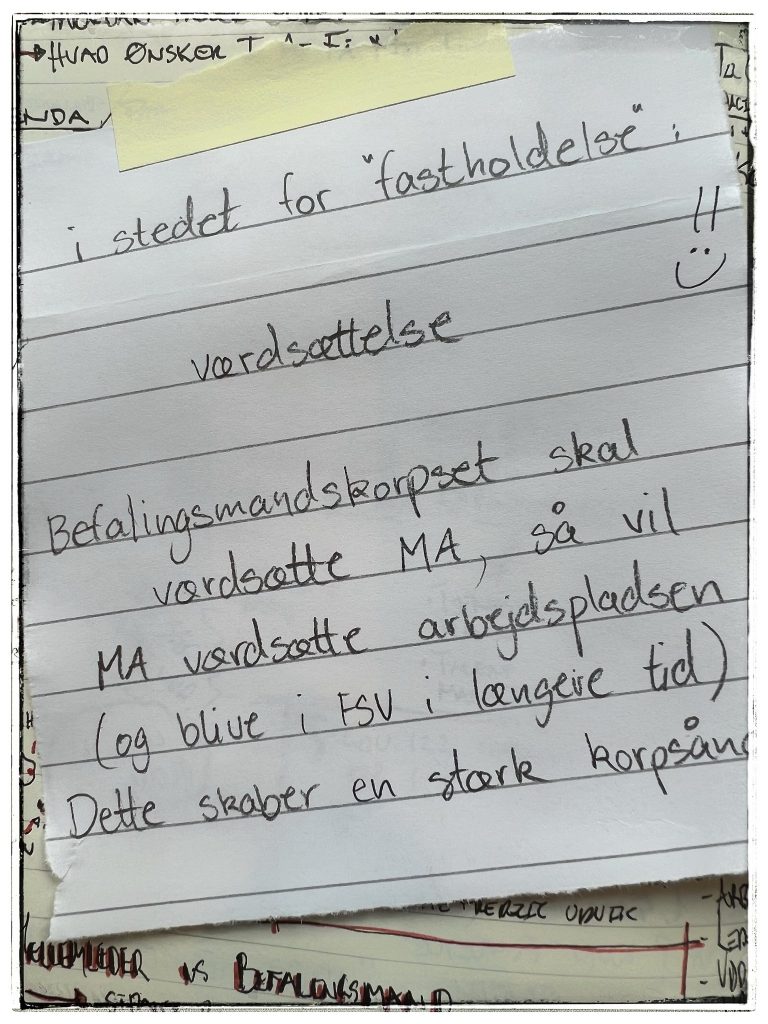 HVAD ØNSKER
NDA
i stedet for "fastholdelse":
!!
værdsættelse
Befalingsmandskorpset skal
værdsætte MA, så vil
MA værdsætte arbejdspladsen
(og blive i FSV i længere tid)
Dette skaber en stærk korpsånd
VS BEFALINGSMAND